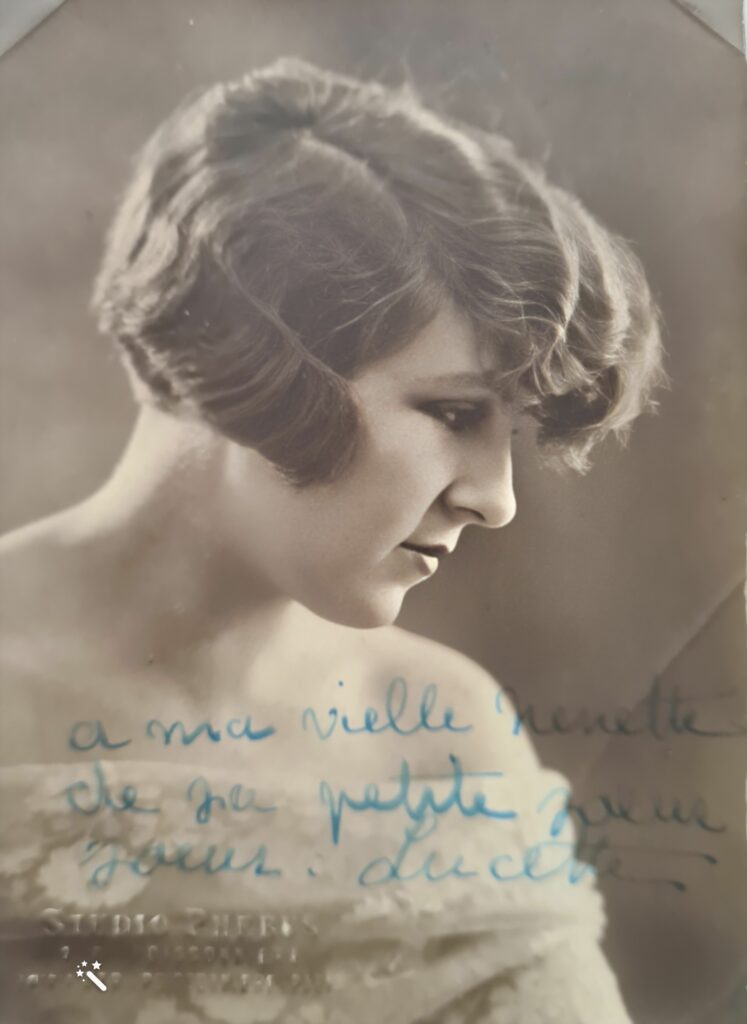 a ma vielle Nenette
de sa petite soeur
soeur. Lucette
STUDIO